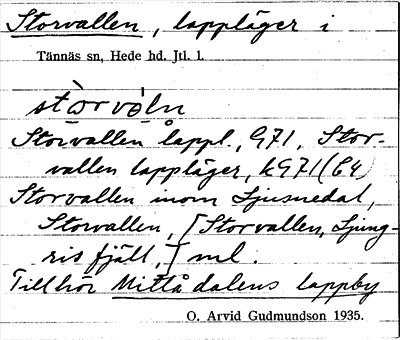 Storvallen, lappläger i
Tännäs sn, Hede hd. Jtl. l.
stòrvòln
Storvallen låppl., G71, Stor-
vallen lappläger, kG71 (C4)
Storvallen inom Ljusnedal,
Storvallen, [Storvallen, Ljung-
ris fjäll,] ml.
Tillhör Mittådalens lappby
O. Arvid Gudmundson 1935.